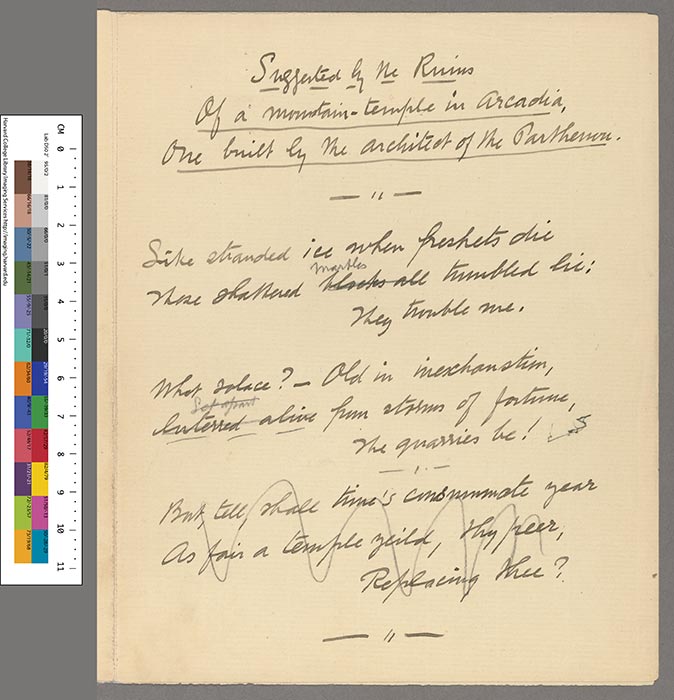 Suggested by the Ruins
Of a mountain-temple in Arcadia,
One built by the architect of the Parthenon.
— " —
Like stranded ice when freshets die
marbles
These shattered blocks all tumbled lie:
They trouble me.
What solace? — Old in inexhaustion,
Set apart
Interred alive from storms of fortune,
The quarries be!
— ' —
But, tell, shall time's consummate year
As fair a temple yeild, thy peer,
Replacing thee?
— " —
CM 0 1 2 3 4 5 6 7 8 9 10 11
Harvard College Library Imaging Services